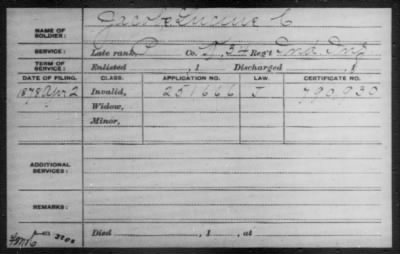 NAME OF SOLDIER: Jacobs Lucine C
SERVICE: Late rank, P Co. 34 Reg't Ind Inf
TERM OF SERVICE: Enlisted , 1 Discharged , 1
DATE OF FILING. CLASS. APPLICATION NO. LAW. CERTIFICATE NO.
1878 Apr 2 Invalid, 251666 J 790,930
Widow,
Minor,
ADDITIONAL SERVICES:
REMARKS:
Died , 1 , at